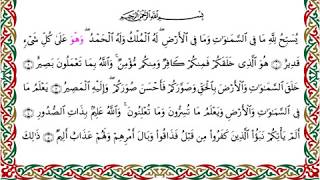 بِسْمِ اللَّهِ الرَّحْمَٰنِ الرَّحِيمِ
يُسَبِّحُ لِلَّهِ مَا فِي السَّمَاوَاتِ وَمَا فِي الْأَرْضِ ۖ لَهُ الْمُلْكُ وَلَهُ الْحَمْدُ ۖ وَهُوَ عَلَىٰ كُلِّ شَيْءٍ
قَدِيرٌ ۝ هُوَ الَّذِي خَلَقَكُمْ فَمِنكُمْ كَافِرٌ وَمِنكُم مُّؤْمِنٌ ۚ وَاللَّهُ بِمَا تَعْمَلُونَ بَصِيرٌ ۝
خَلَقَ السَّمَاوَاتِ وَالْأَرْضَ بِالْحَقِّ وَصَوَّرَكُمْ فَأَحْسَنَ صُوَرَكُمْ ۖ وَإِلَيْهِ الْمَصِيرُ ۝ يَعْلَمُ مَا
فِي السَّمَاوَاتِ وَالْأَرْضِ وَيَعْلَمُ مَا تُسِرُّونَ وَمَا تُعْلِنُونَ ۚ وَاللَّهُ عَلِيمٌ بِذَاتِ الصُّدُورِ ۝
أَلَمْ يَأْتِكُمْ نَبَأُ الَّذِينَ كَفَرُوا مِن قَبْلُ فَذَاقُوا وَبَالَ أَمْرِهِمْ وَلَهُمْ عَذَابٌ أَلِيمٌ ۝ ذَٰلِكَ